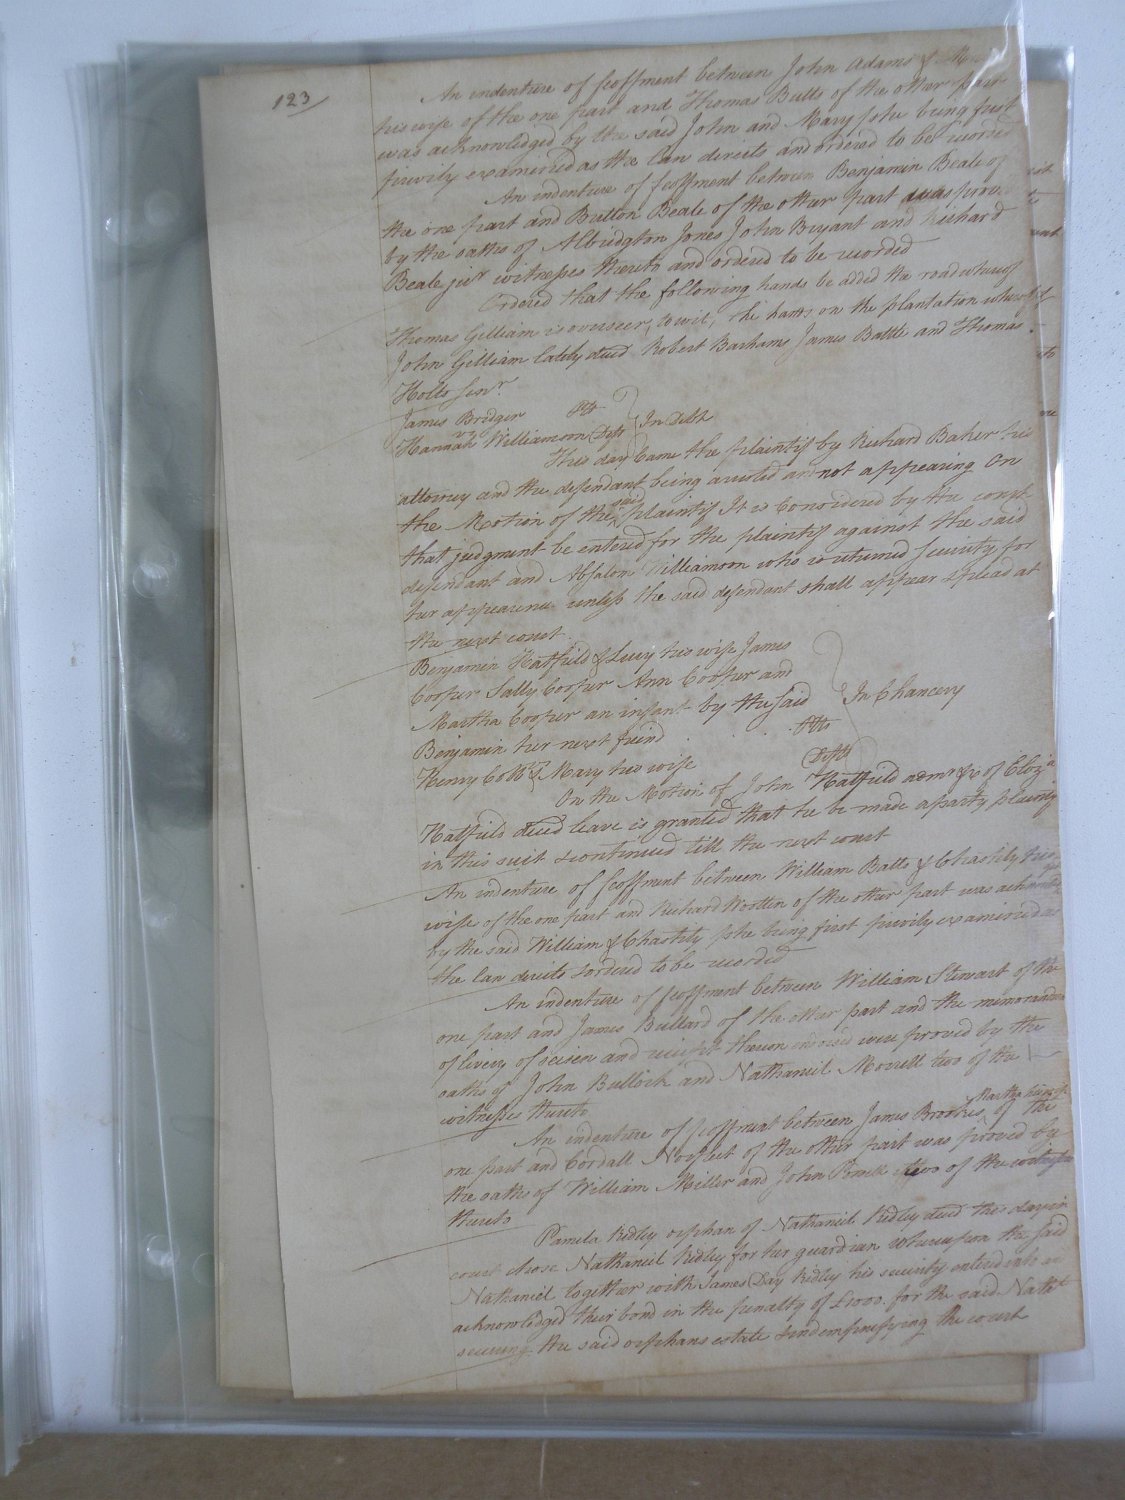 123
An indenture of feoffment between John Adams &
his wife of the one part and Thomas Butts of the other part
was acknowledged by the said John and Mary (she being first
privily examined as the law directs and ordered to be recorded
An indenture of feoffment between Benjamin Beale of
the one part and Button Beale of the other part was
by the oaths of Albridgton Jones John Bryant and Richard
Beale junr witnesses thereto and ordered to be recorded
Ordered that the following hands be added the road whereof
Thomas Gilliam is overseer, to wit, The hands on the plantation whereof
John Gilliam lately deced Robert Barhams James Battle and Thomas
Holts Senr
James Bridger Plt
Hannah Williamson Deft } In Debt
This day Came the plaintif by Richard Baker his
attorney and the defendant being arrested and not appearing On
the Motion of the said plaintif It is Considered by the court
that judgment be entered for the plaintif against the said
defendant and Absalom Williamson who is returned security for
her appearance unless the said defendant shall appear & plead at
the next court.
Benjamin Hatfield & Lucy his wife James
Cooper Sally Cooper Ann Cooper and
Martha Cooper an infant by the said } In Chancery
Benjamin her next friend Plts
Henry Cobb & Mary his wife Defts
On the Motion of John Hatfield admr &c of Eliza
Hatfield deced leave is granted that he be made a party plaintif
in this suit & continued till the next court
An indenture of feoffment between William Batts & Chastity his
wife of the one part and Richard Wootten of the other part was
by the said William & Chastity (she being first privily examined as
the law directs & ordered to be recorded
An indenture of feoffment between William Stewart of the
one part and James Bullard of the other part and the memorandum
of livery of seisen and receipt thereon indorsed were proved by the
oaths of John Bullock and Nathaniel Morrell two of the
witnesses thereto
An indenture of feoffment between James Brookes, Martha his wife of the
one part and Cordall Norfleet of the other part was proved by
the oaths of William Miller and John Powell two of the witnesses
thereto
Pamela Ridley orphan of Nathaniel Ridley deced this day in
court chose Nathaniel Ridley for her guardian whereupon the said
Nathaniel together with James Day Ridley his security entered into &
acknowledged their bond in the penalty of £1000. for the said Nathl
securing the said orphans estate & indemnifying the court